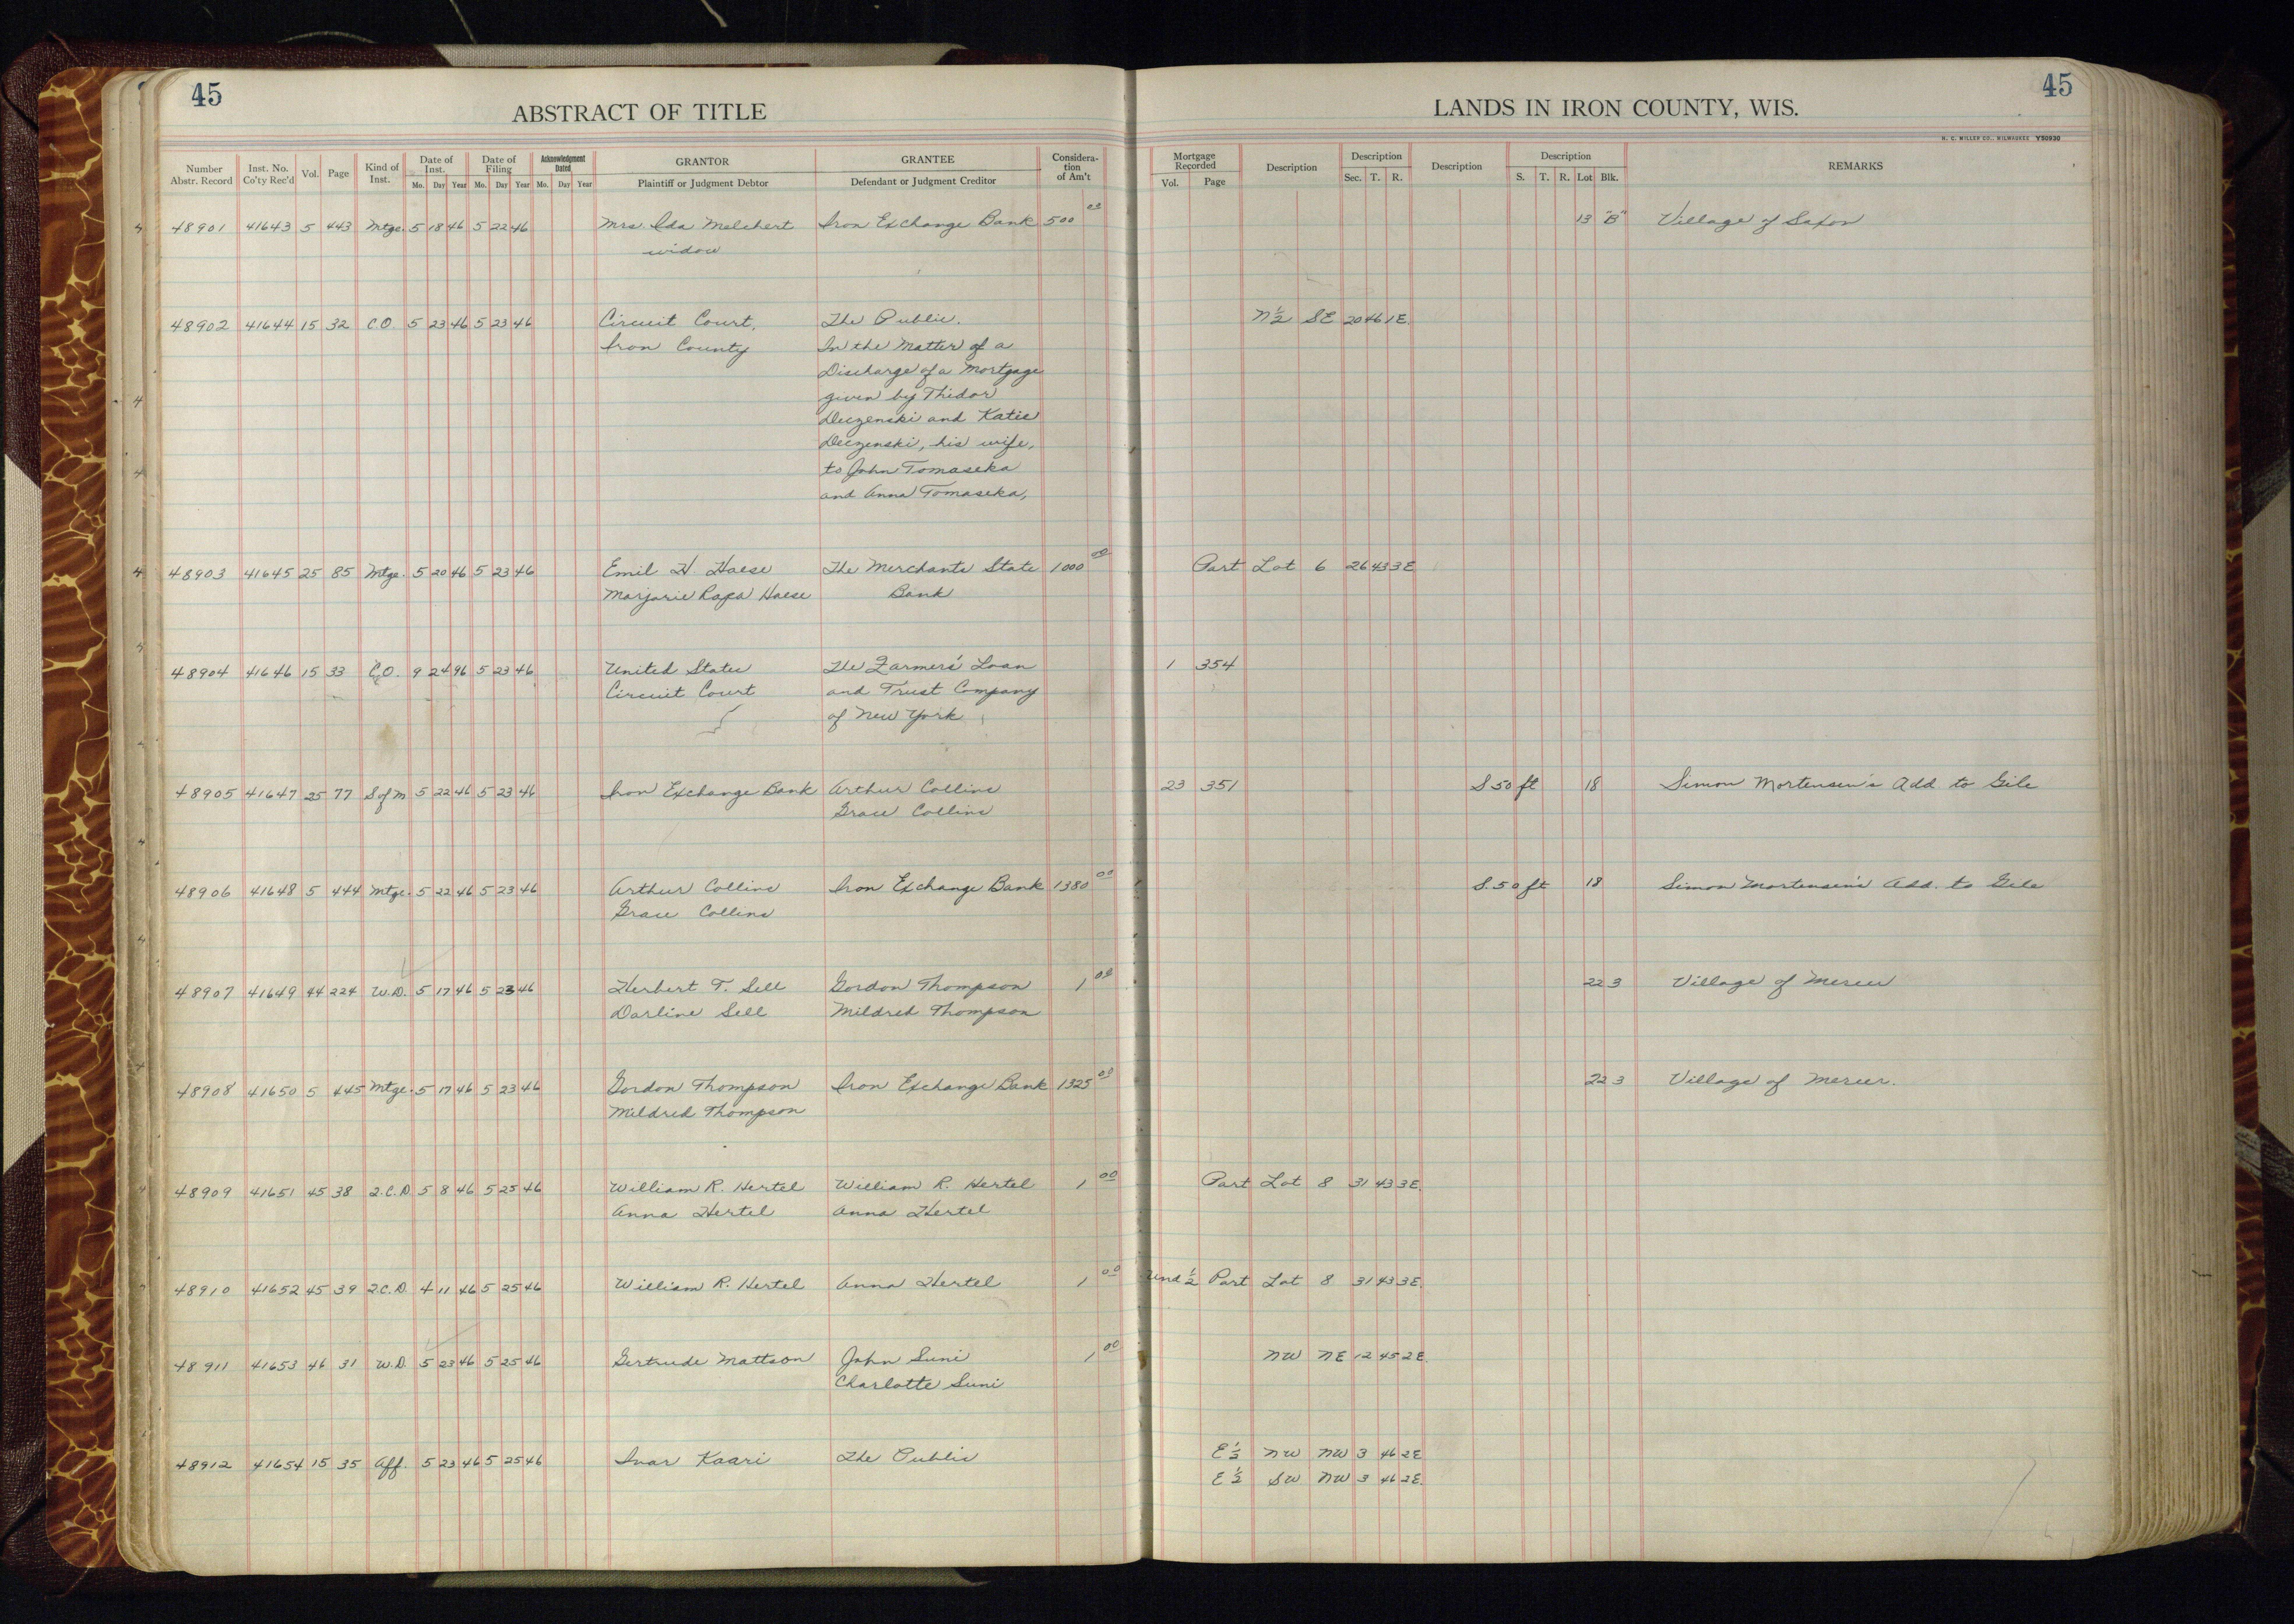 45
45
ABSTRACT OF TITLE
LANDS IN IRON COUNTY, WIS.
H. C. MILLER CO., MILWAUKEE Y50930
Number Abstr. Record Inst. No. Co'ty Rec'd Vol. Page Kind of Inst. Date of Inst. Mo. Day Year Date of Filing Mo. Day Year Acknowledgment Dated Mo. Day Year GRANTOR Plaintiff or Judgment Debtor GRANTEE Defendant or Judgment Creditor Considera-tion of Am't Mortgage Recorded Vol. Page Description Description Sec. T. R. Description Description S. T. R. Lot Blk. REMARKS
48901 41643 5 443 Mtge. 5 18 46 5 22 46 Mrs. Ida Melchert Iron Exchange Bank 500 00 13 "B" Village of Saxon
widow
48902 41644 15 32 C.O. 5 23 46 5 23 46 Circuit Court, The Public. N½ SE 20 46 1E.
Iron County In the Matter of a
Discharge of a Mortgage
given by Thidor
Deczenski and Katie
Deczenski, his wife,
to John Tomaseka
and Anna Tomaseka,
48903 41645 25 85 Mtge. 5 20 46 5 23 46 Emil H. Haese The Merchants State 1000 00 Part Lot 6 26 43 3E
Marjorie Rapa Haese Bank
48904 41646 15 33 C.O. 9 24 96 5 23 46 United States The Farmers' Loan 1 354
Circuit Court and Trust Company
of New York
48905 41647 25 77 S of M 5 22 46 5 23 46 Iron Exchange Bank Arthur Collins 23 351 S 50 ft 18 Simon Mortensen's Add. to Gile
Grace Collins
48906 41648 5 444 Mtge. 5 22 46 5 23 46 Arthur Collins Iron Exchange Bank 1380 00 S. 50 ft 18 Simon Mortensen's Add. to Gile
Grace Collins
48907 41649 44 224 W.D. 5 17 46 5 23 46 Herbert T. Sell Gordon Thompson 1 00 22 3 Village of Mercer
Darline Sell Mildred Thompson
48908 41650 5 445 Mtge. 5 17 46 5 23 46 Gordon Thompson Iron Exchange Bank 1325 00 22 3 Village of Mercer.
Mildred Thompson
48909 41651 45 38 Q.C.D 5 8 46 5 25 46 William R. Hertel William R. Hertel 1 00 Part Lot 8 31 43 3E.
Anna Hertel Anna Hertel
48910 41652 45 39 Q.C.D. 4 11 46 5 25 46 William R. Hertel Anna Hertel 1 00 Und ½ Part Lot 8 31 43 3E.
48911 41653 46 31 W.D. 5 23 46 5 25 46 Gertrude Mattson John Suni 1 00 NW NE 12 45 2E.
Charlotte Suni
48912 41654 15 35 Aff. 5 23 46 5 25 46 Ivar Kaari The Public E½ NW NW 3 46 2E
E½ SW NW 3 46 2E.